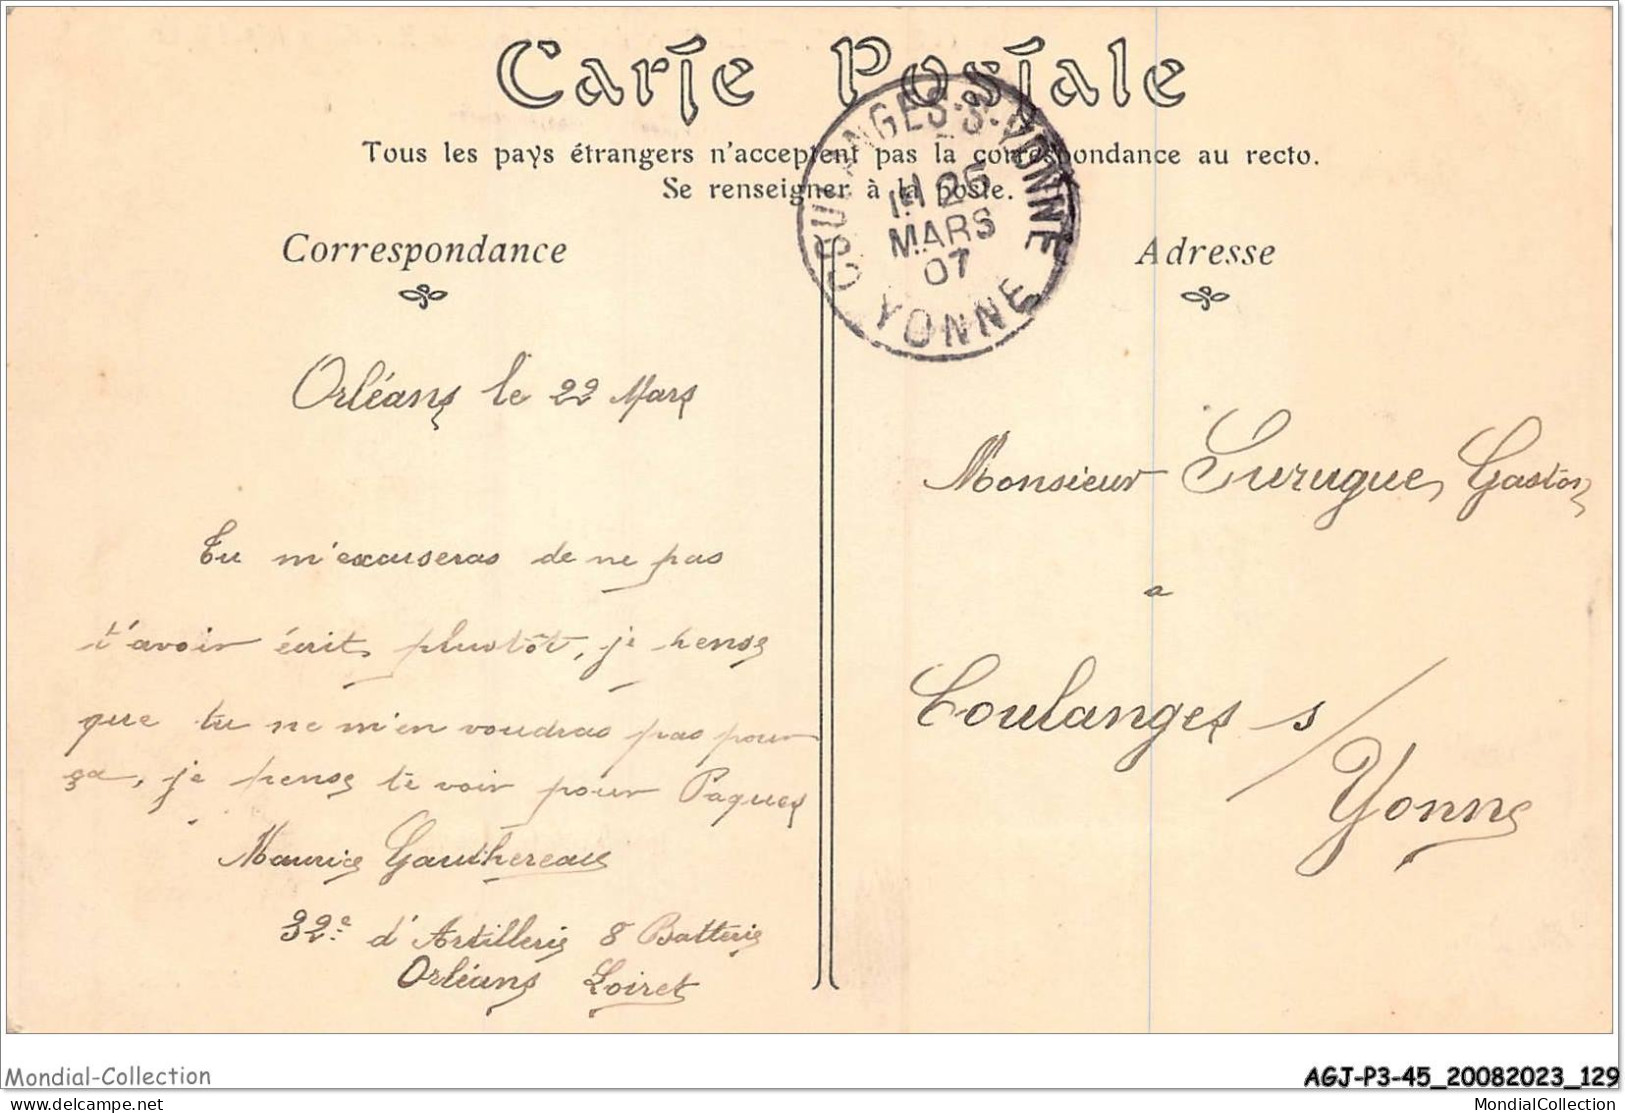 Carte Postale
Tous les pays étrangers n'acceptent pas la correspondance au recto.
Se renseigner à la poste.
COULANGES-S-YONNE
26
MARS
07
YONNE
Correspondance
Adresse
Orléans le 22 Mars
Tu m'excuseras de ne pas
t'avoir écrit plustôt, je pense
que tu ne m'en voudras pas pour
ça, je pense te voir pour Paques
Maurice Gauthereau
32e d'Artillerie 8 Batterie
Orléans Loiret
Monsieur Surugue, Gaston
a
Coulanges s/
Yonne
Mondial-Collection
AGJ-P3-45_20082023_129
delcampe.net
MondialCollection